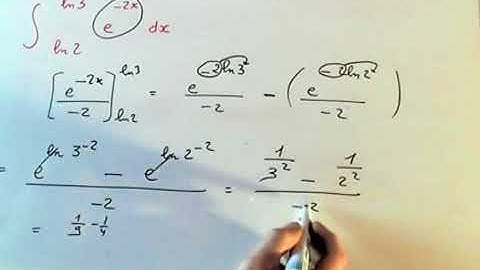 ∫_{ln2}^{ln3} e^{-2x} dx
[e^{-2x}/-2]_{ln2}^{ln3} = e^{-2ln3^2}/-2 - (e^{-2ln2^2}/-2)
= (e^{ln3^{-2}} - e^{ln2^{-2}})/-2 = (1/3^2 - 1/2^2)/-2
= 1/9 - 1/4